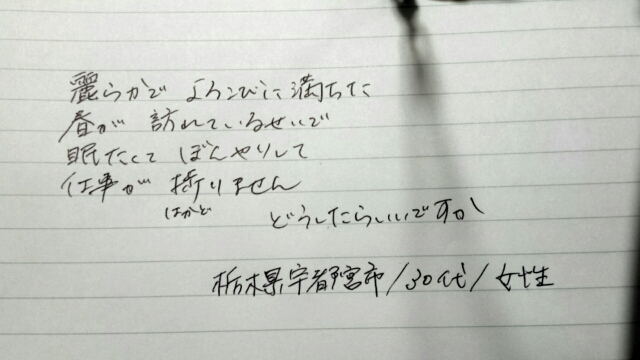 麗らかで よろこびに満ちた
昼が 訪れているせいで
眠たくて ぼんやりして
仕事が 捗りません
はかど
どうしたらいいですか
栃木県宇都宮市/30代/女性